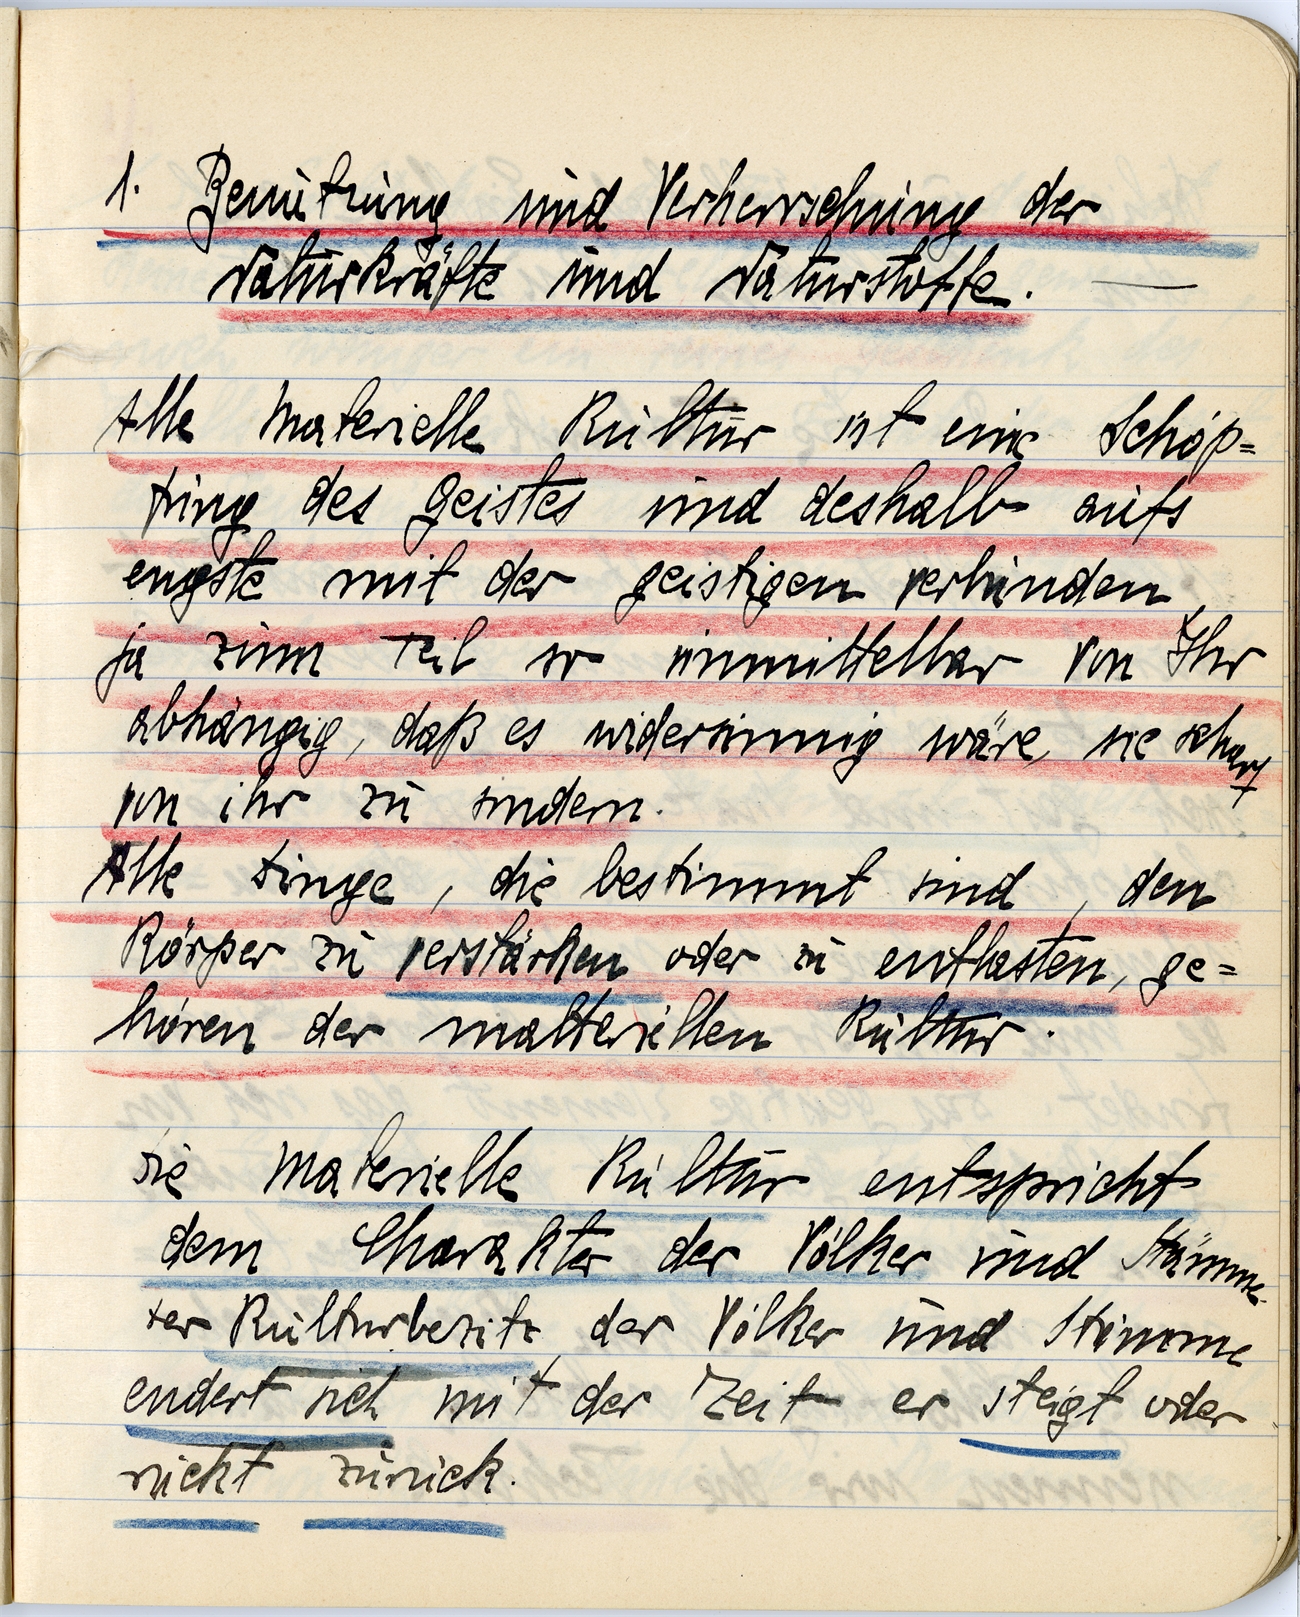 1. Benützung und Verherrschung der
Naturkräfte und Naturstoffe. —
Alle Materielle Kultur ist eine Schöp=
fung des Geistes und deshalb aufs
engste mit der geistigen verbunden
ja zum Teil so unmittelbar von Ihr
abhängig, daß es widersinnig wäre, sie scharf
von ihr zu sondern.
Alle Dinge, die bestimmt sind, den
Körper zu verstärken oder zu entlasten, ge=
hören der matteriellen Kultur.
Die Materielle Kultur entspricht
dem Charakter der Völker und Stämme.
Der Kulturbesitz der Völker und Stämme
endert sich mit der Zeit er steigt oder
rückt zurück.